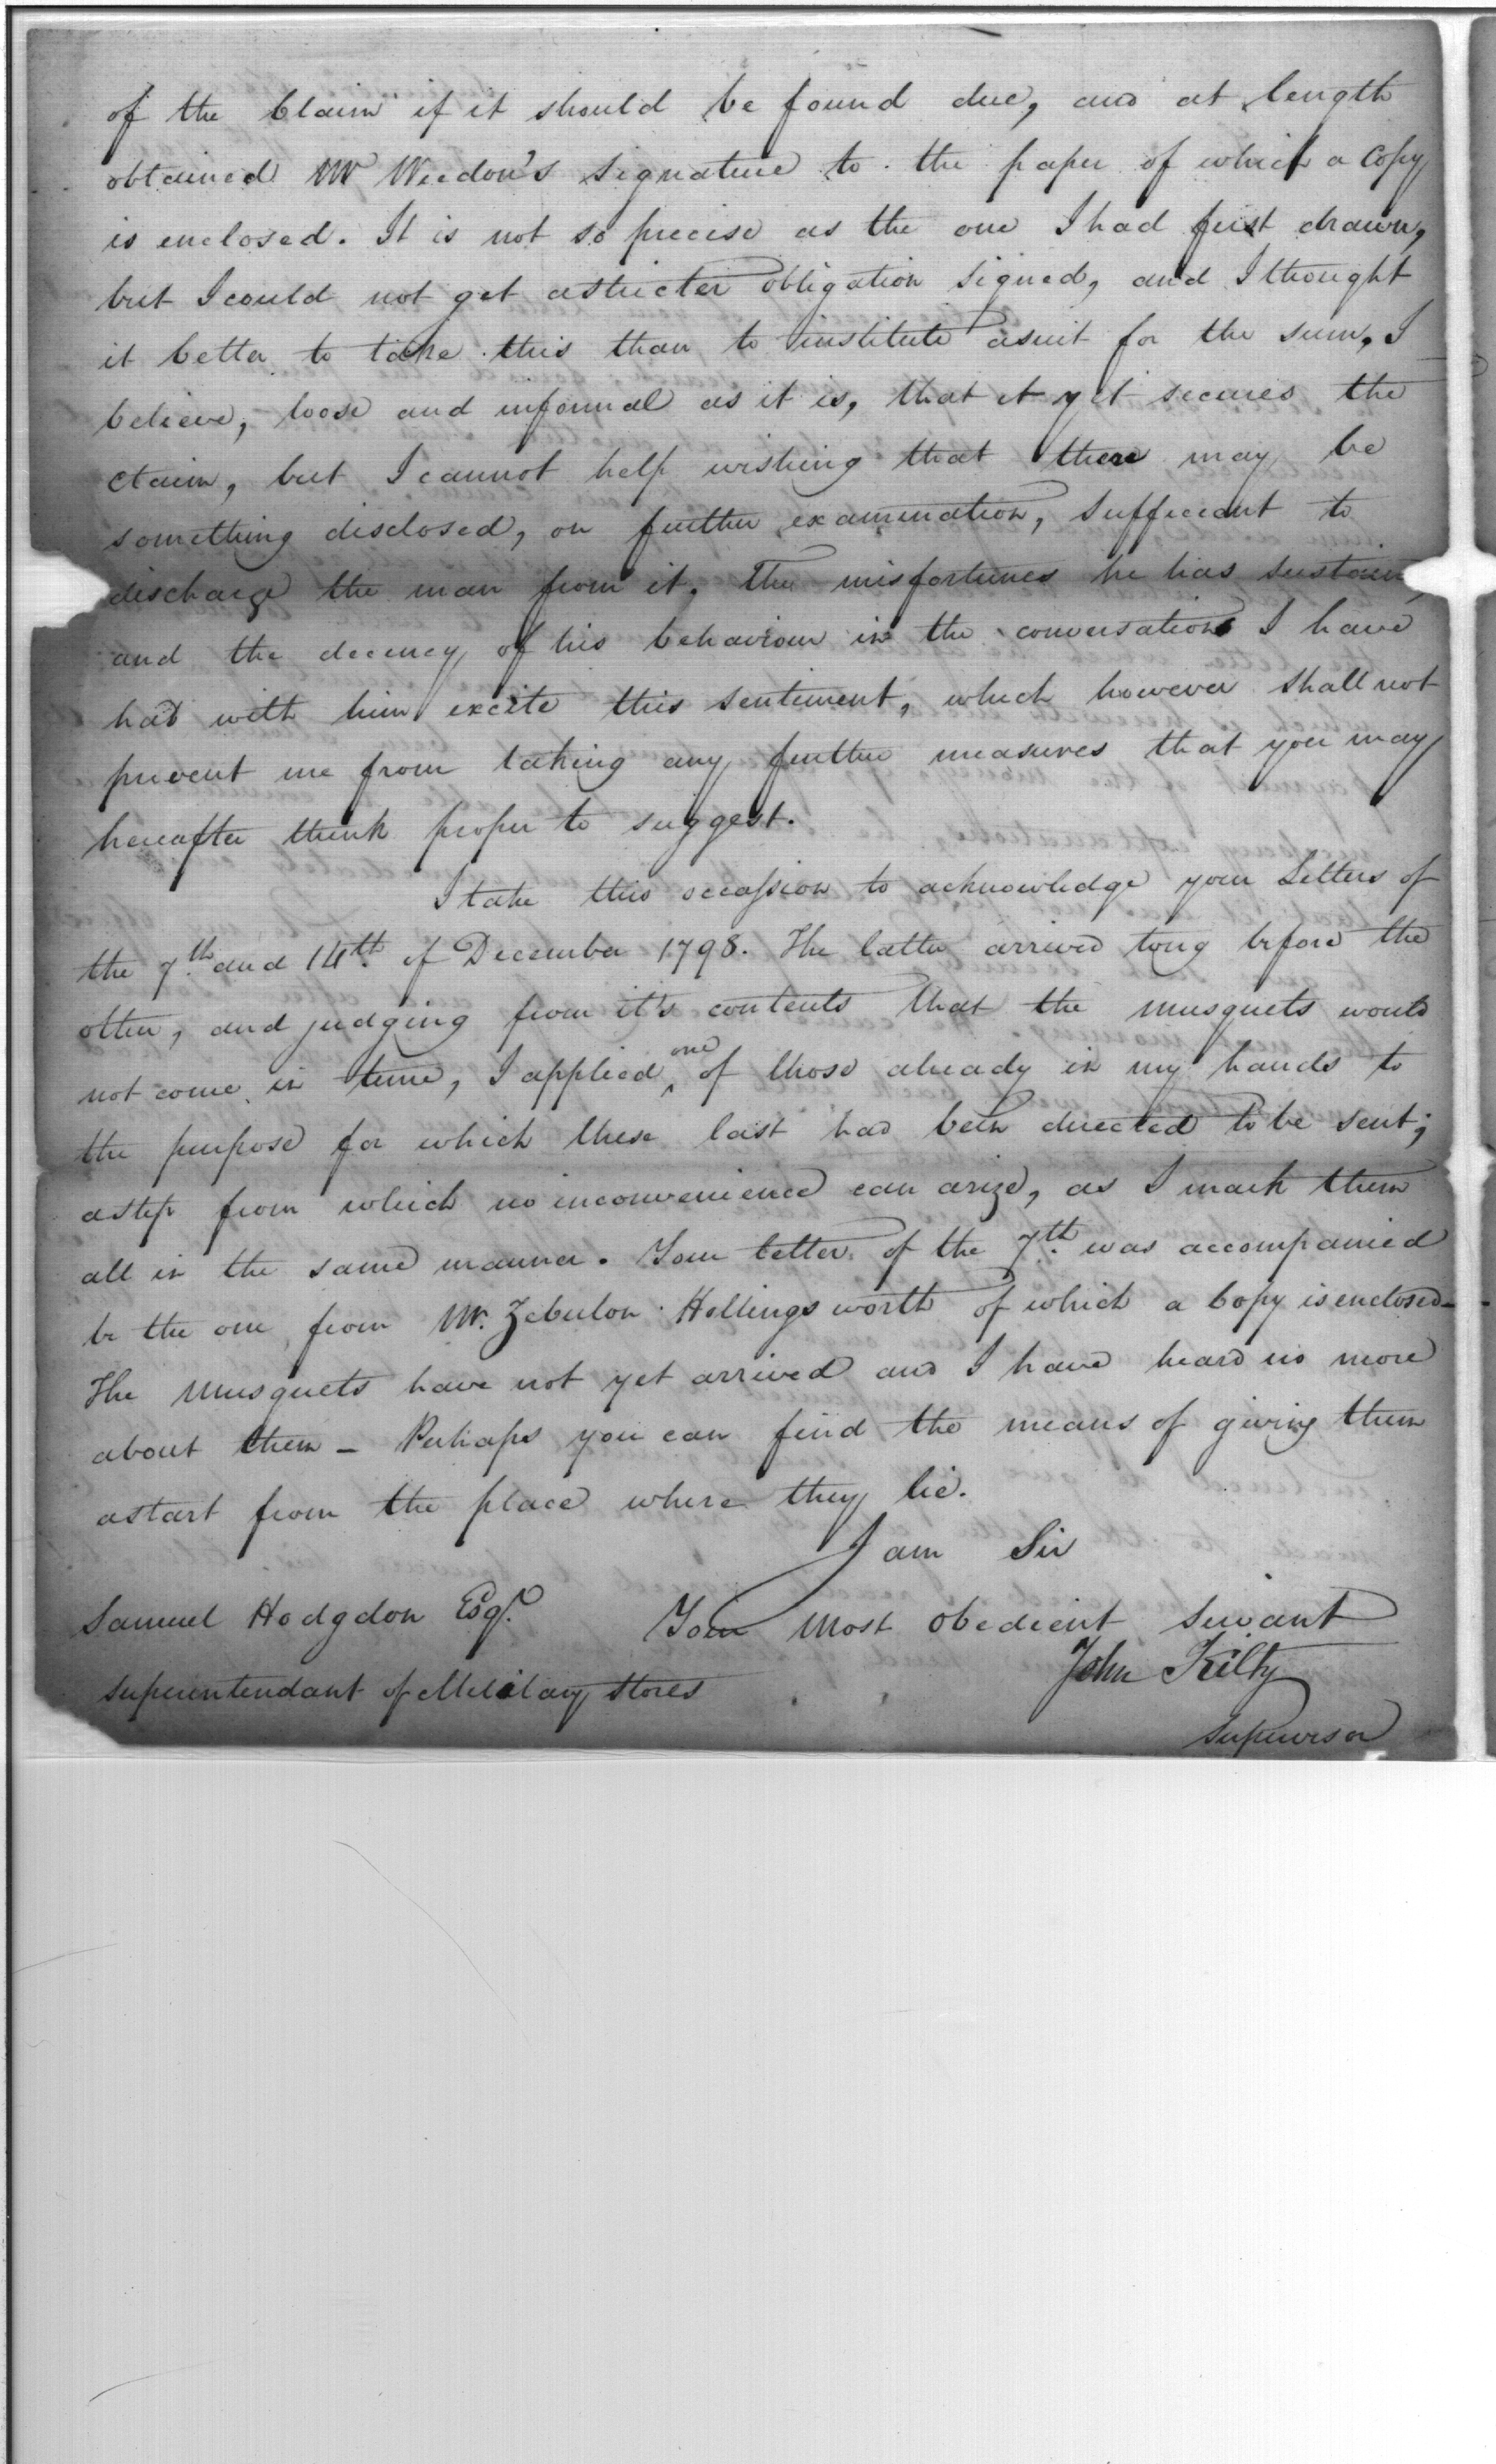 of the Claim if it should be found due, and at length
obtained Mr Weedon's signature to the paper of which a Copy
is enclosed. It is not so precise as the one I had first drawn,
but I could not get a stricter obligation signed, and I thought
it better to take this than to institute a suit for the sum, I
believe, loose and informal as it is, that it yet secures the
claim, but I cannot help wishing that there may be
something disclosed, on further examination, sufficient to
discharge the man from it. The misfortunes he has sustain
and the decency of his behaviour in the conversations I have
had with him excite this sentiment, which however shall not
prevent me from taking any further measures that you may
hereafter think proper to suggest.
I take this occasion to acknowledge your Letters of
the 7.th and 14th of December 1798. The latter arrived long before the
other, and judging from it's contents that the musquets would
not come in time, I applied one of those already in my hands to
the purpose for which these last had been directed to be sent;
a step from which no inconvenience can arize, as I mark them
all in the same manner. Your letter of the 7.th was accompanied
be the one from Mr. Zebulon Hollingsworth of which a Copy is enclosed-
The Musquets have not yet arrived and I have heard no more
about them - Perhaps you can find the means of giving them
a start from the place where they lie.
I am Sir
Samuel Hodgdon Esqr. Your Most Obedient servant
John Kilty
Superintendant of Military Stores
Supervisor